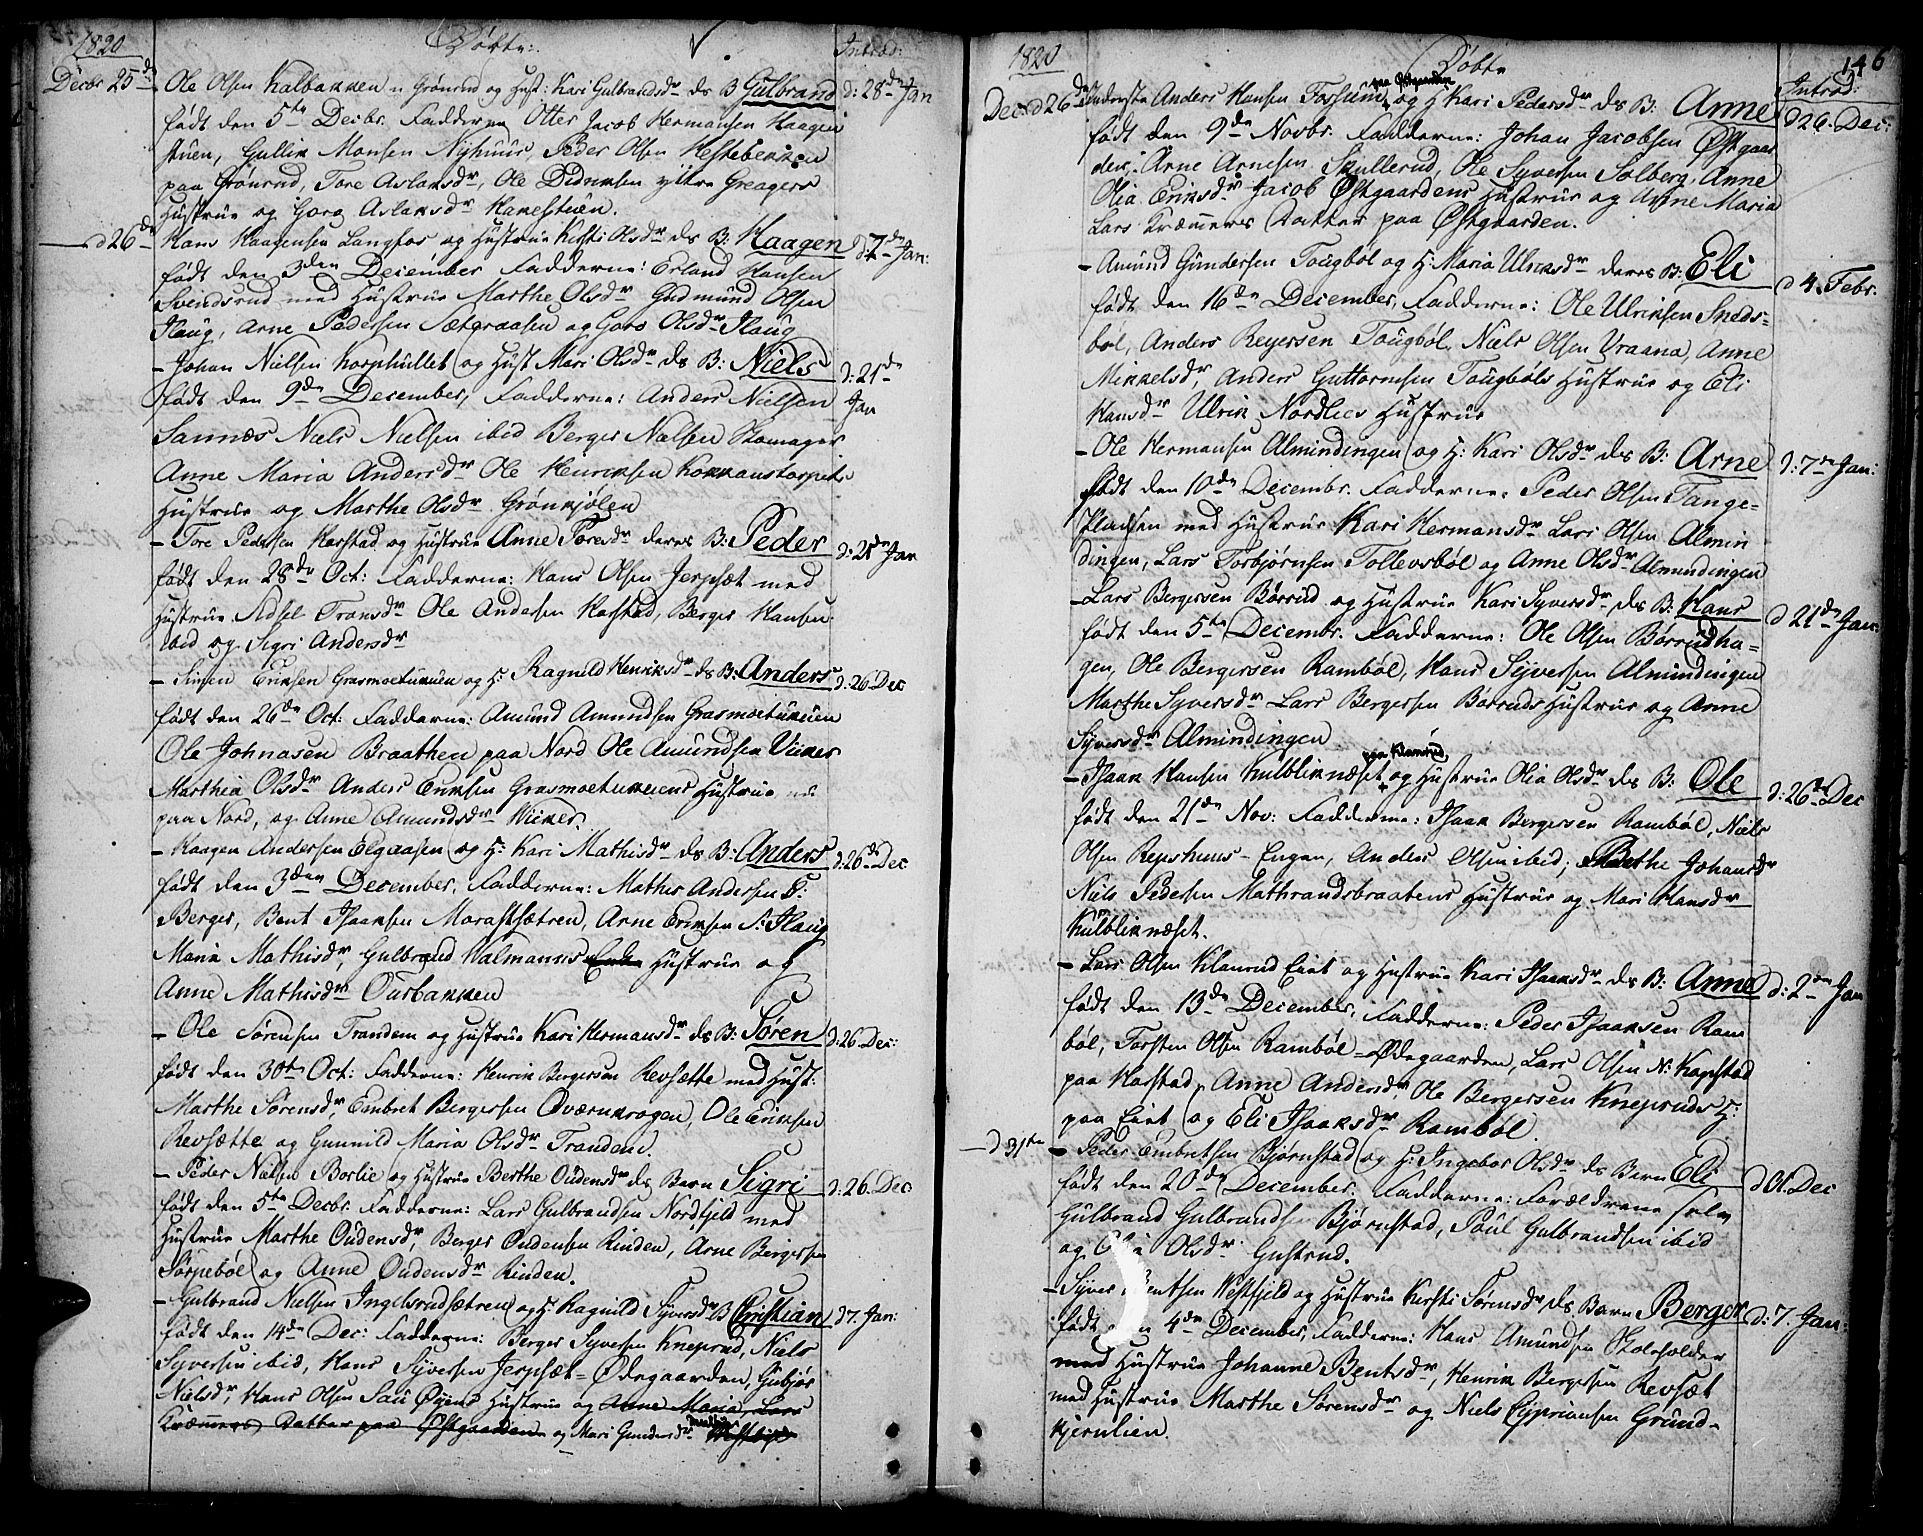 1820
Døbte:
Introd:
Decbr 25de
Ole Olsen Kalbakken u Grønrud og Hust: Kari Gulbrandsdr ds B Gulbrand
d: 28de Jan
født den 5te Decbr. Fadderne Otter Jacob Hermansen Haagen
stuen, Gullik Monsen Nyhuus, Peder Olsen Hestebekken
paa Grønrud, Tore Aslaksdr, Ole Didriksen yttre Greagers
Hustrue og Goro Aslaksdr Hakestuen.
d 26de
Hans Haagensen Langfos og Hustrue Kirsti Olsdr ds B: Haagen
d 7de Jan:
født den 3den December Fadderne: Erland Hansen
Svendsrud med Hustrue Marthe Olsdr Gudmund Olsen
Haug, Arne Pedersen Sætgraasen og Goro Olsdr Haug
- Johan Nielsen Korphullet og Hust Mari Olsdr ds B: Niels
d: 21de
Jan
født den 9de December, Fadderne: Anders Nielsen
Sannæs Niels Nielsen ibid Berger Nielsen Skomager
Anne Maria Andersdr Ole Henriksen Kokkanstorpets
Hustrue og Marthe Olsdr Grønkjølen
- Tore Pedersen Harstad og Hustrue Anne Toresdr deres B: Peder
d: 21de Jan
født den 28de Oct: Fadderne: Hans Olsen Jerpset med
Hustrue Adsel Transdr Ole Andersen Harstad, Berger Hansen
ibid og Sigri Andersdr
- Simen Eriksen Grasmoetukuen og H: Ragnild Henriksdr ds B: Anders
d: 26 Dec
født den 26de Oct: Fadderne: Amund Amundsen Grasmoetukuen
Ole Johnasen Braathen paa Nord Ole Amundsen Viker
Marthea Olsdr Anders Eriksen Grasmoetukuens Hustrue
paa Nord, og Anne Amundsdr Wiker.
- Haagen Andersen Elgaasen og H: Kari Mathisdr ds B: Anders
d: 26de Dec
født den 3den December, Fadderne: Mathis Andersen S:
Berger, Bent Isaksen Morastsætren, Arne Eriksen N: Haug
Maria Mathisdr, Gulbrand Walmanns Enke Hustrue og
Anne Mathisdr Ourbakken
- Ole Sørensen Trandem og Hustrue Kari Hermansdr ds B: Søren
d: 26 Dec:
født den 30te Oct: Fadderne: Henrik Bergersen Revsætte med Hust:
Marthe Sørensdr, Embret Bergersen Qværnkrogen, Ole Eriksen
Revsætte og Gunnild Maria Olsdr Trandem.
- Peder Nielsen Borlie og Hustrue Berthe Oudensdr ds Barn Sigri
d: 26. Dec
født den 5te Decbr. Fadderne: Lars Gulbrandsen Nordfjeld med
Hustrue Marthe Oudensdr, Berger Oudensen Rinden, Arne Bergersen
Sørpebøl og Anne Oudensdr Rinden.
- Gulbrand Nielsen Ingelsrudsætren og H: Ragnild Syversdr ds B Christian
d 7. Jan:
født den 14de Dec: Fadderne: Berger Syversen Kneprud, Niels
Syversen ibid, Hans Syversen Jerpset-Ødegaarden, Gubjør
Nielsdr, Hans Olsen Sau Øyens Hustrue og Anne Maria Lars
Kræmmers Datter paa Østgaarden og Mari Gundersdr
1820
Døbte
146
Introd:
Dec: d 26de
Inderste Anders Hansen Fossum paa Østgaarden og H Kari Pedersdr ds B: Anne
d 26. Dec:
født den 9de Novbr. Fadderne: Johan Jacobsen Østgaar
den, Arne Arnesen Skullerud, Ole Syversen Solberg, Anne
Olia Eriksdr Jacob Østgaardens Hustrue og Anne Maria
Lars Kræmmers Datter paa Østgaarden.
- Amund Gundersen Tougbøl og H: Maria Ulriksdr deres B: Eli
d 4. Febr.
født den 16de December, Fadderne: Ole Ulriksen Sneds-
bøl, Anders Reyersen Tougbøl, Niels Olsen Vraana, Anne
Mikkelsdr, Anders Guttormsen Tougbøls Hustrue og Eli
Hansdr Ulrik Nordlies Hustrue
- Ole Hermansen Almindingen og H: Kari Olsdr ds B: Arne
d: 7de Jan:
født den 10de Decembr. Fadderne: Peder Olsen Tange-
Pladsen med Hustrue Kari Hermansdr Lars Olsen Almin
dingen, Lars Torbjørnsen Tollevsbøl og Anne Olsdr Almindingen
- Lars Bergersen Børrud og Hustrue Kari Syversdr ds B: Hans
d 21de Jan:
født den 5te Decembr. Fadderne: Ole Olsen Børrudha-
gen, Ole Bergersen Rambøl, Hans Syversen Almindingen
Marthe Syversdr Lars Bergersen Børruds Hustrue og Anne
Syversdr Almindingen
- Isaak Hansen Kulbliknæset paa Klanrud og Hustrue Olia Olsdr ds B: Ole
d: 26de Dec
født den 21de Nov: Fadderne: Isaak Bergersen Rambøl, Niels
Olsen Repshuus-Engen, Anders Olsen ibid, Berthe Johansdr
Niels Pedersen Mathrandsbraatens Hustrue og Mari Hansdr
Kulbliknæset.
- Lars Olsen Klanrud Eiet og Hustrue Kari Isaaksdr ds B: Anne
d: 2den Jan
født den 13de December, Fadderne: Peder Isaaksen Ram
bøl, Torsten Olsen Rambøl-Ødegaarden, Lars Olsen N: Kapstad
paa Harstad, Anne Andersdr, Ole Bergersen Kneprudss H:
paa Eiet og Eli Isaaksdr Rambøl.
d 31te
- Peder Embretsen Bjørnstad og H: Ingebor Olsdr ds Barn Eli
d 31. Dec
født den 20de December. Fadderne: Forældrene selv
Gulbrand Gulbrandsen Bjørnstad, Poul Gulbrandsen ibid
og Olia Olsdr Gustrud.
- Syver Bentsen Westfjeld og Hustrue Kirsti Sørensdr ds Barn Berger
d: 7. Jan:
født den 4de December, Fadderne: Hans Amundsen Skoleholder
med Hustrue Johanne Bentsdr, Henrik Bergersen Revsæt
med Hustrue Marthe Sørensdr og Niels Cypriansen Grund-
kjernlien.